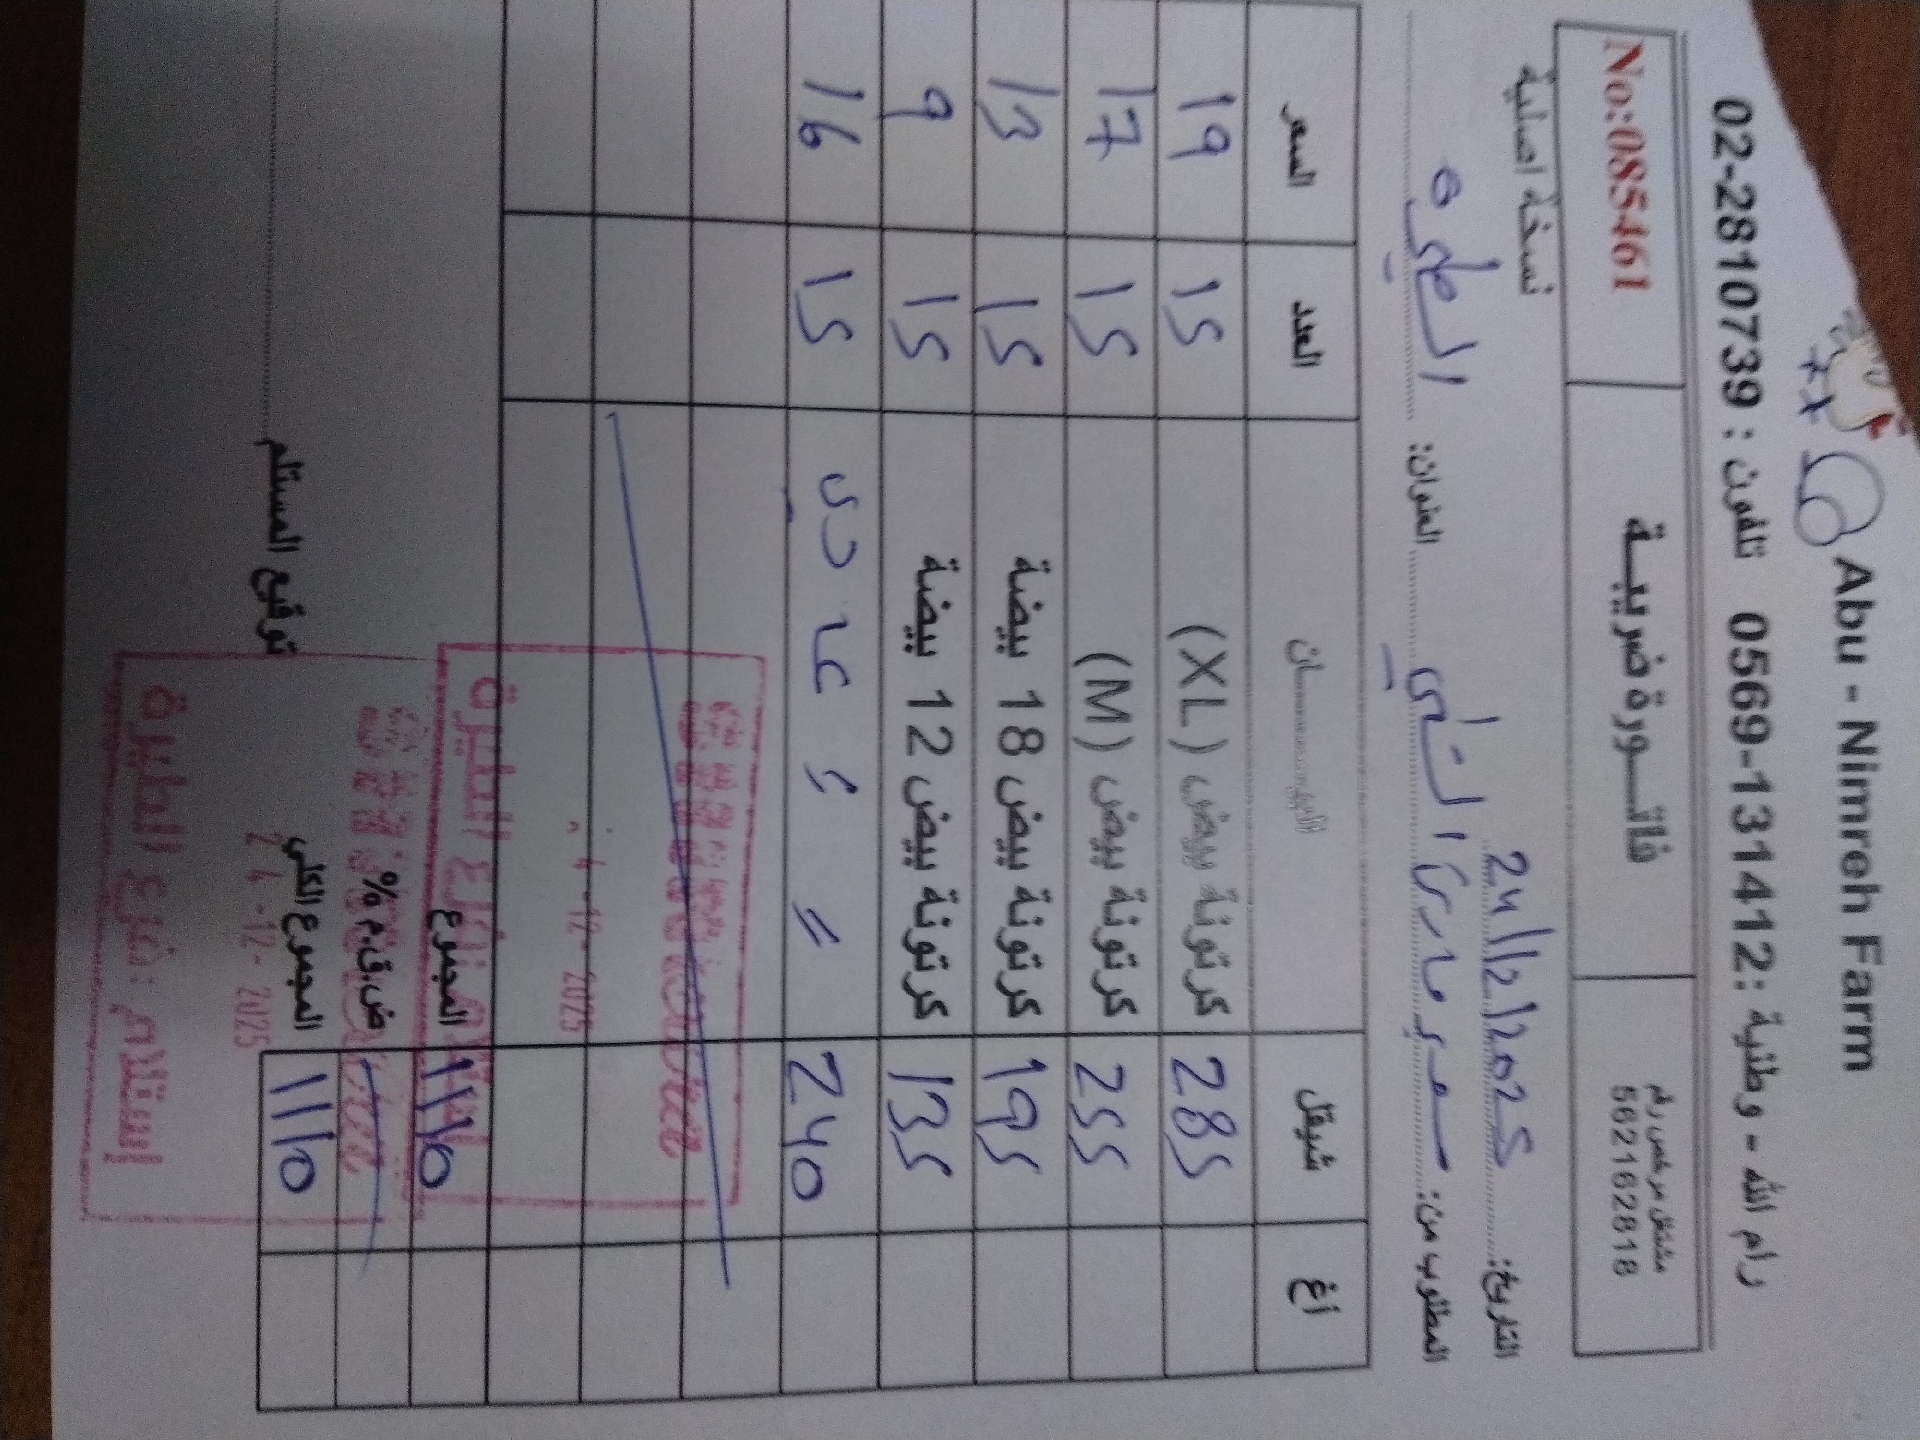 Abu - Nimreh Farm
رام الله - وطنية : 1314412-0569 تلفون : 02-2810739
مشتغل مرخص رقم
562162818
فاتـــورة ضريبيـــة
No:085461
نسخة اصلية
التاريخ: 24/12/2025
المطلوب من: العنوان: الطيرة
أغ شيقل البيـــــــان العدد السعر
285 كرتونة بيض (XL) 15 19
255 كرتونة بيض (M) 15 17
195 كرتونة بيض 18 بيضة 15 13
135 كرتونة بيض 12 بيضة 15 9
240 = = عادي 15 16
1110 المجموع
ض.ق.م %
1110 المجموع الكلي
توقيع المستلم
فرع الطيرة
4 -12- 2025
إستلام : فرع الطيرة
24 -12- 2025